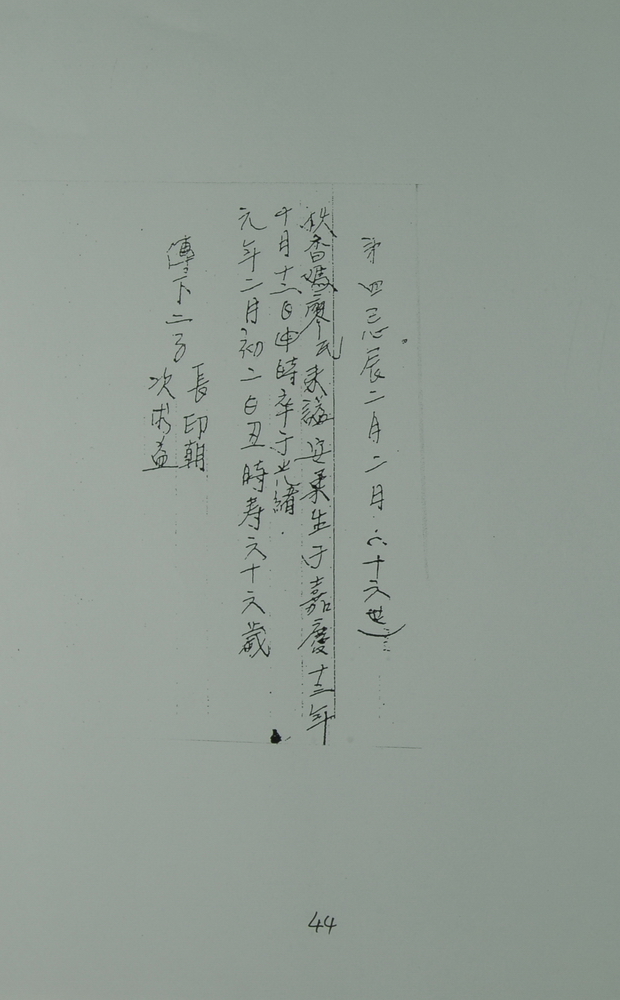 第四 忌辰二月二日 六十六世
秩香媽廖氏来諡安柔生于嘉慶十三年
十月十二日申時卒于光緒
元年二月初二日丑時寿六十六歲
傳下二子
長印朝
次
44